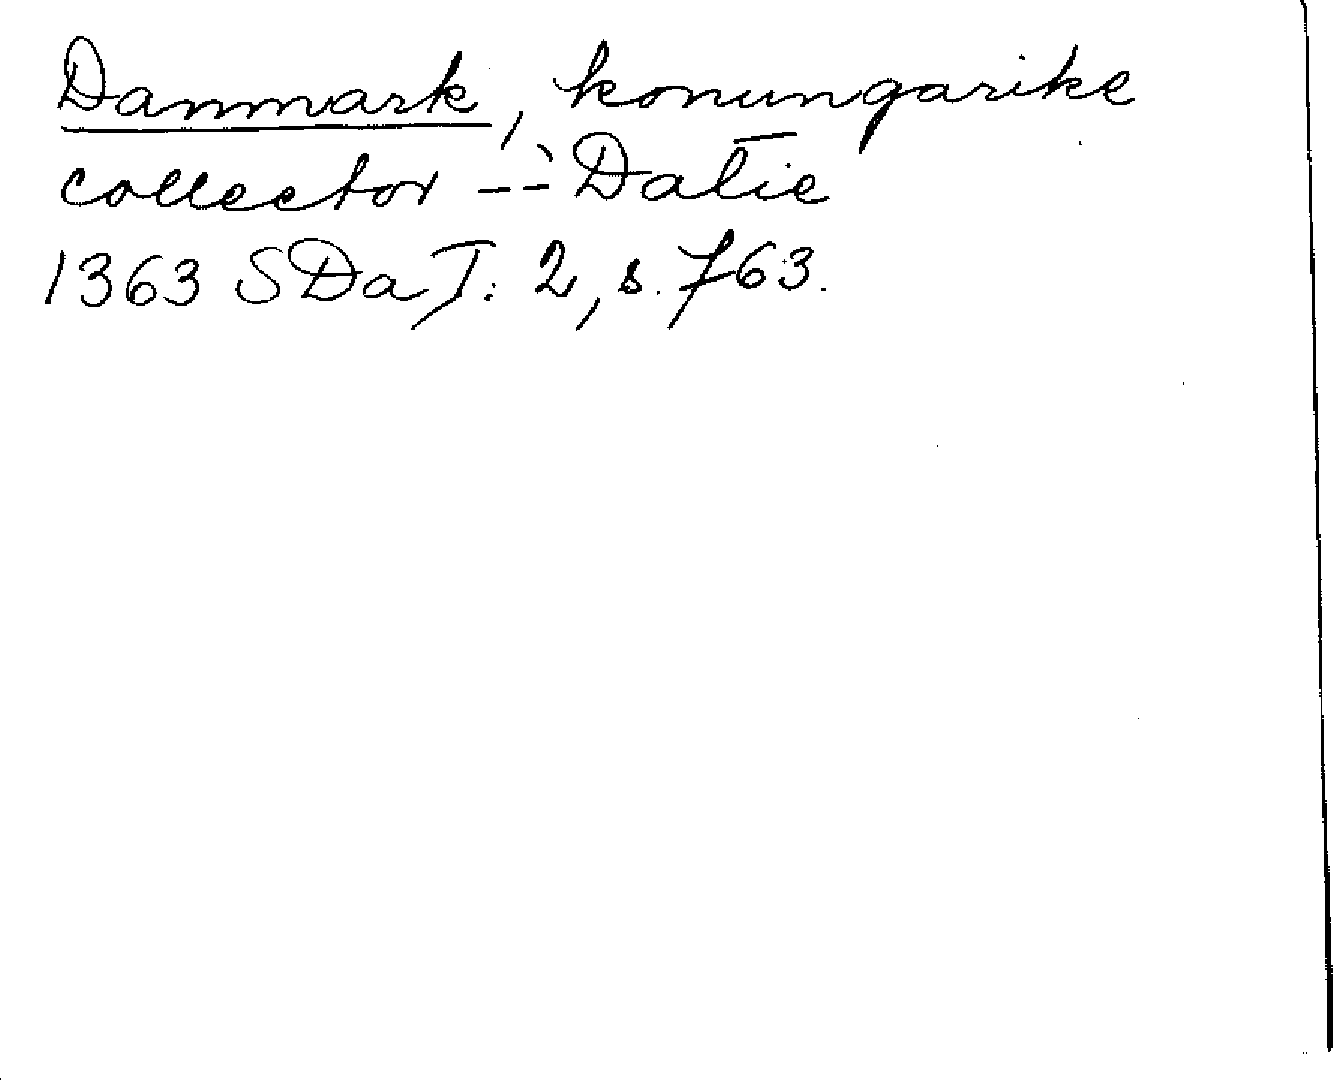 Danmark, konungarike
collector -- Datie
1363 SDa I: 2, s. 763.